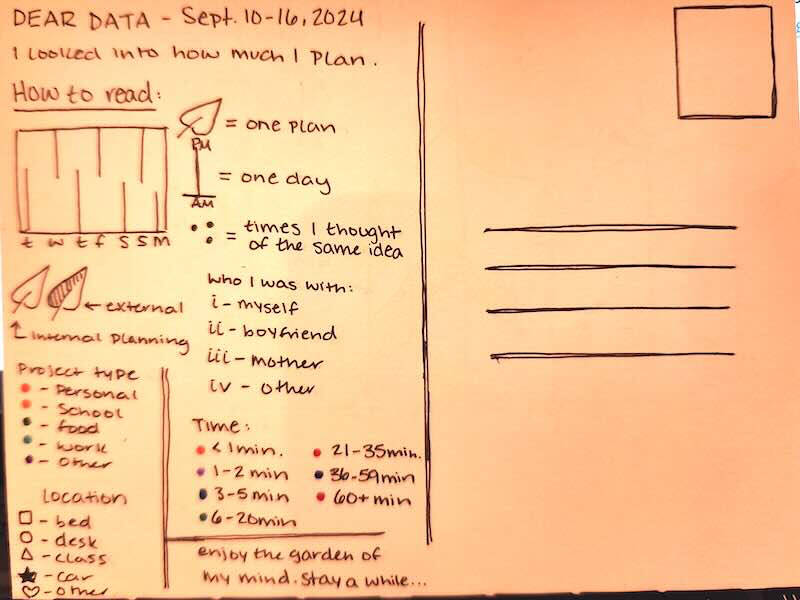 DEAR DATA - Sept. 10-16, 2024
I looked into how much I plan.
How to read:
= one plan
PM
= one day
AM
= times I thought
of the same idea
t w t f s s m
← external
Internal planning
who I was with:
i - myself
ii - boyfriend
iii - mother
iv - other
Project type
- Personal
- School
- food
- work
- other
Location
- bed
- desk
- class
- car
- other
Time:
<1min.
1-2 min
3-5 min
6-20min
21-35min.
36-59min
60+ min
enjoy the garden of
my mind. stay a while...